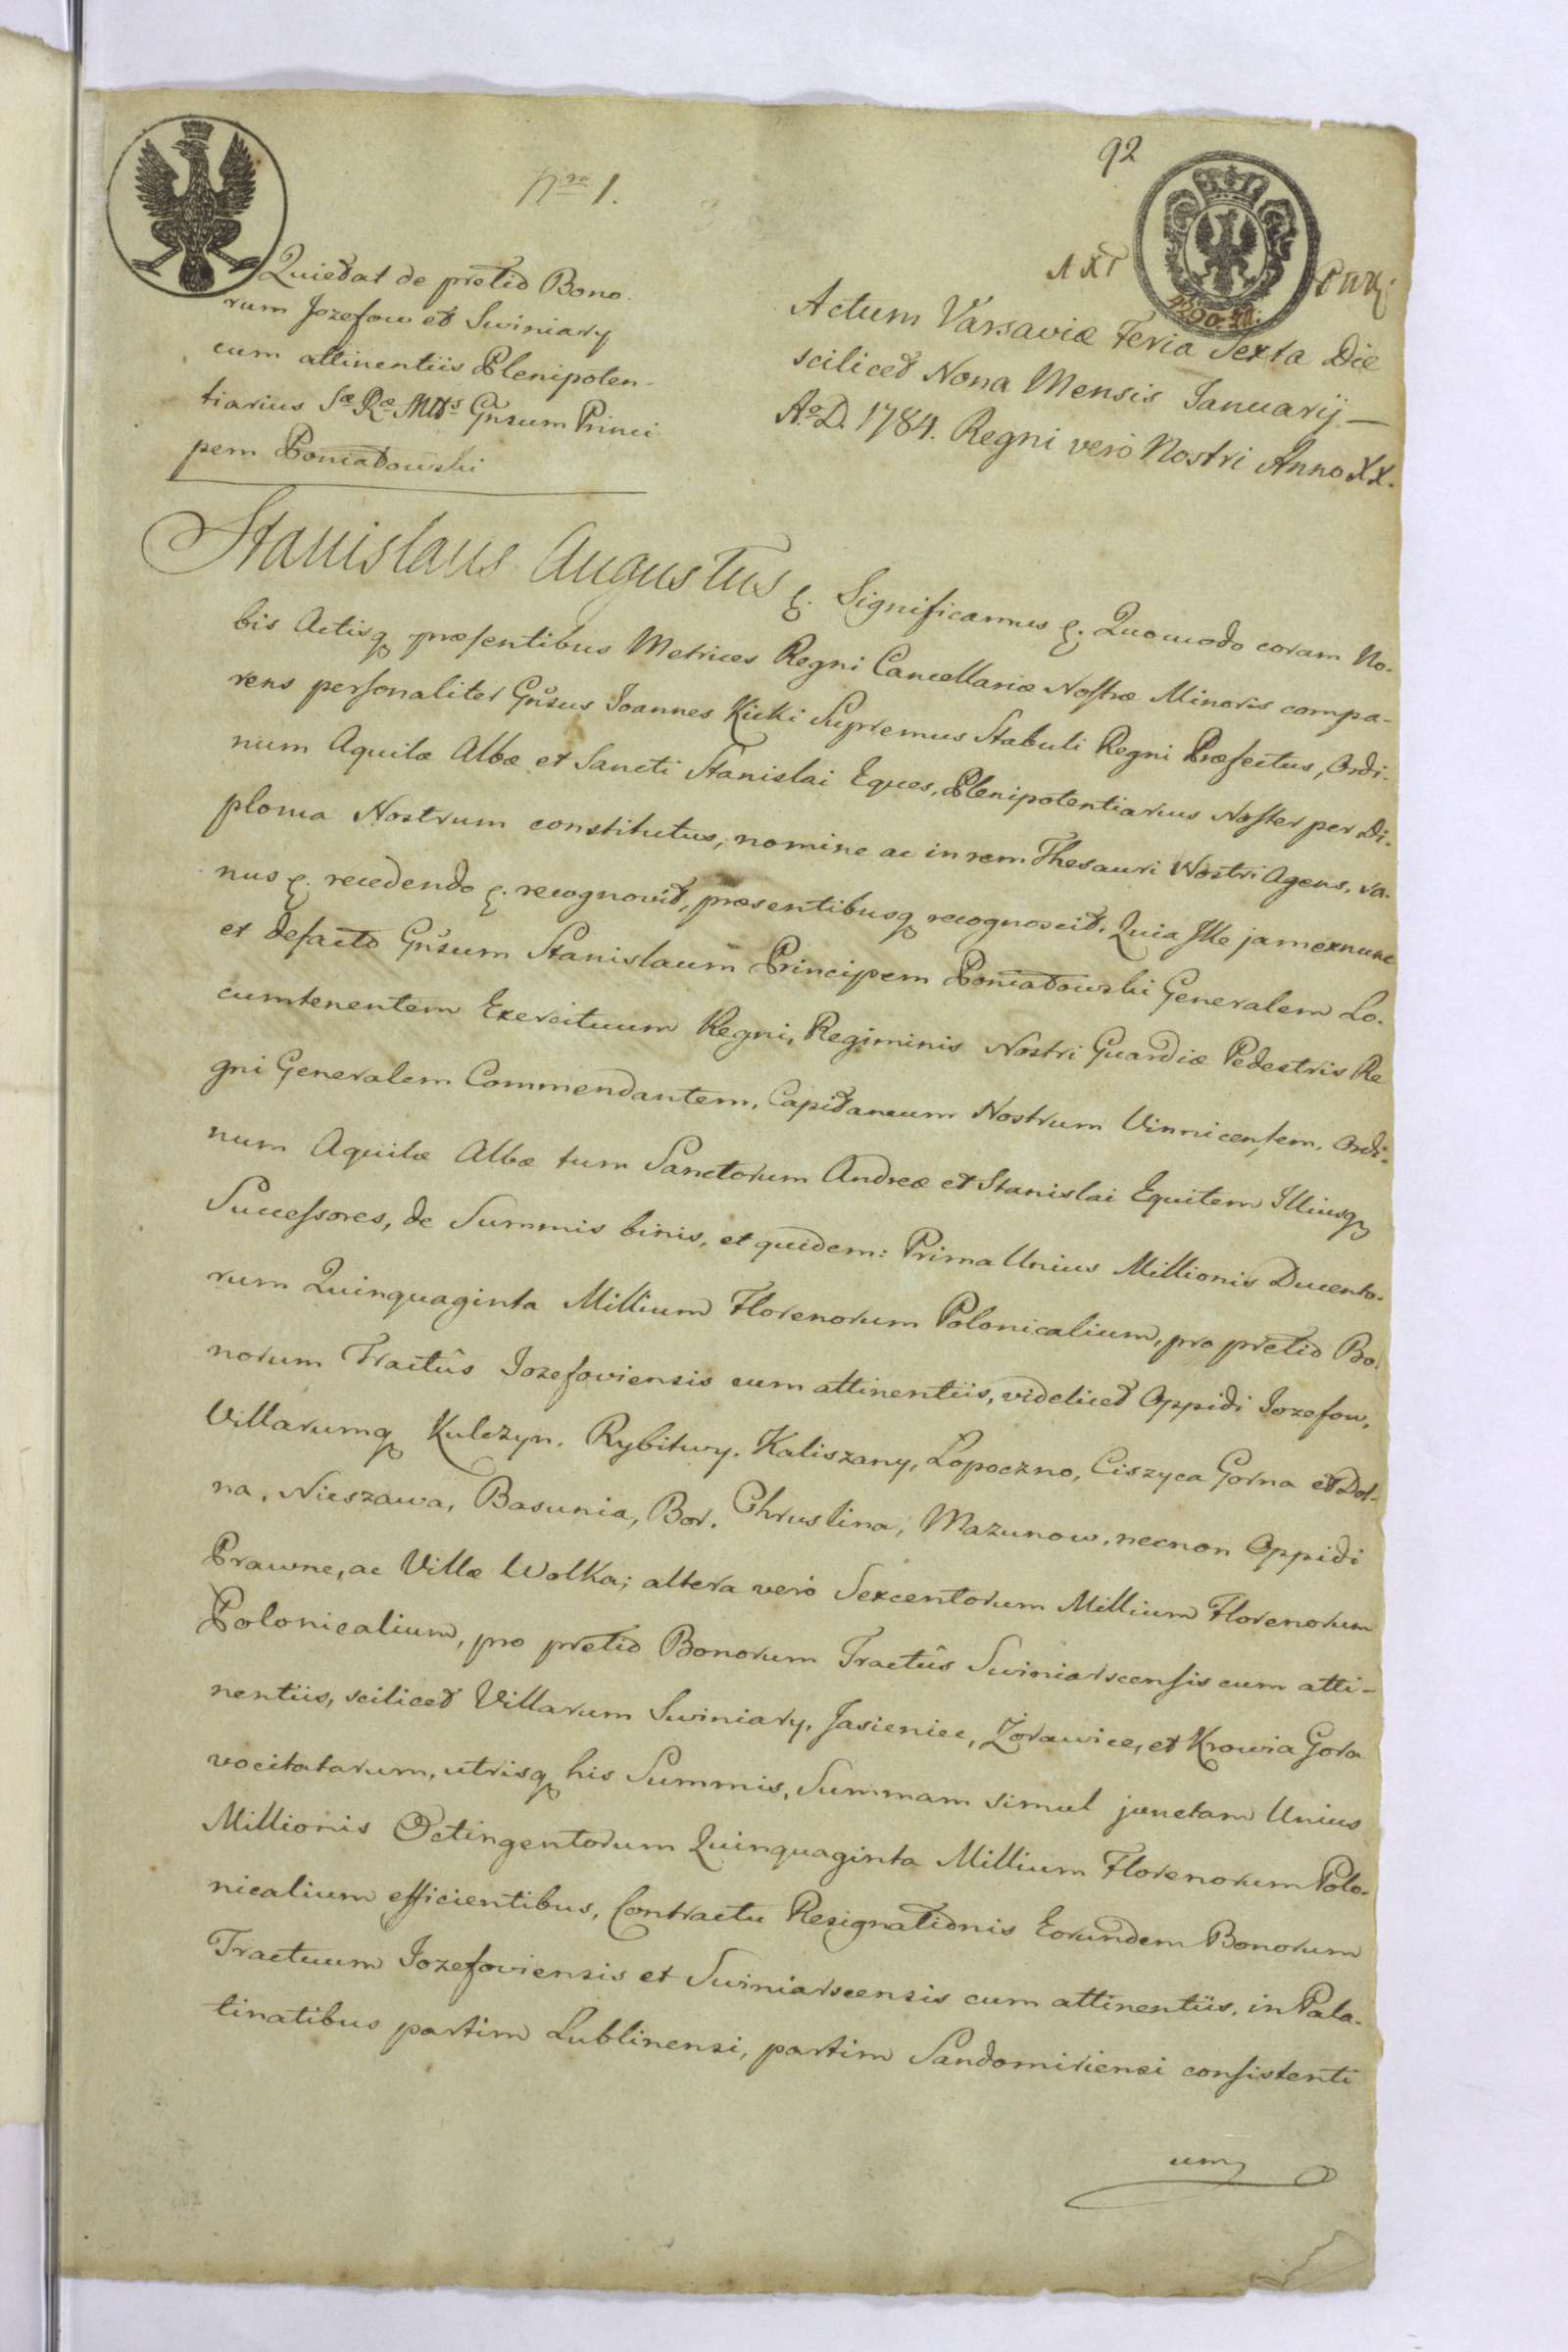 92
Nro 1.
Quietat de pretio Bono-
rum Jozefow et Swiniary
cum attinentiis Plenipoten-
tiarius Sæ Ræ Mttis Gnrum Princi
pem Poniatowski
4 gr. sr:
Actum Varsaviæ Feria Sexta Die
scilicet Nona Mensis Januarij —
Ao D. 1784. Regni verò Nostri Anno XX.
Stanislaus Augustus &. Significamus &. Quomodo coram No-
bis Actisq præsentibus Metrices Regni Cancellariæ Nostræ Minoris compa-
rens personaliter Gnrsus Joannes Kicki Supremus Stabuli Regni Præfectus, Ordi-
num Aquilæ Albæ et Sancti Stanislai Eques, Plenipotentiarius Noster per Di-
ploma Nostrum constitutus, nomine ac in rem Thesauri Nostri Agens, sa-
nus &. recedendo &. recognovit, præsentibusq recognoscit. Quia Ille jam exnunc
et defacto Gnrsum Stanislaum Principem Poniatowski Generalem Lo-
cumtenentem Exercituum Regni, Regiminis Nostri Guardiæ Pedestris Re
gni Generalem Commendantem, Capitaneum Nostrum Vinnicensem, Ordi-
num Aquilæ Albæ tum Sanctorum Andreæ et Stanislai Equitem Illiusq
Successores, de Summis binis, et quidem: Prima Unius Millionis Ducento-
rum Quinquaginta Millium Florenorum Polonicalium, pro pretio Bo-
norum Tractûs Jozefoviensis cum attinentiis, videlicet Oppidi Jozefow,
Villarumq Kulczyn, Rybitwy, Kaliszany, Łopoczno, Ciszyca Gorna et Dol-
na, Nieszawa, Basunia, Bor, Chruslina, Mazunow, necnon Oppidi
Prawne, ac Villæ Wolka; altera verò Sexcentorum Millium Florenorum
Polonicalium, pro pretio Bonorum Tractûs Swiniarscensis cum atti-
nentiis, scilicet Villarum Swiniary, Jasieniec, Żorawice, et Krowia Gora
vocitatarum, utrisq his Summis, Summam simul junctam Unius
Millionis Octingentorum Quinquaginta Millium Florenorum Polo-
nicalium efficientibus, Contractu Resignationis Eorundem Bonorum
Tractuum Jozefoviensis et Swiniarscensis cum attinentiis, in Pala-
tinatibus partim Lublinensi, partim Sandomiriensi consistenti
um